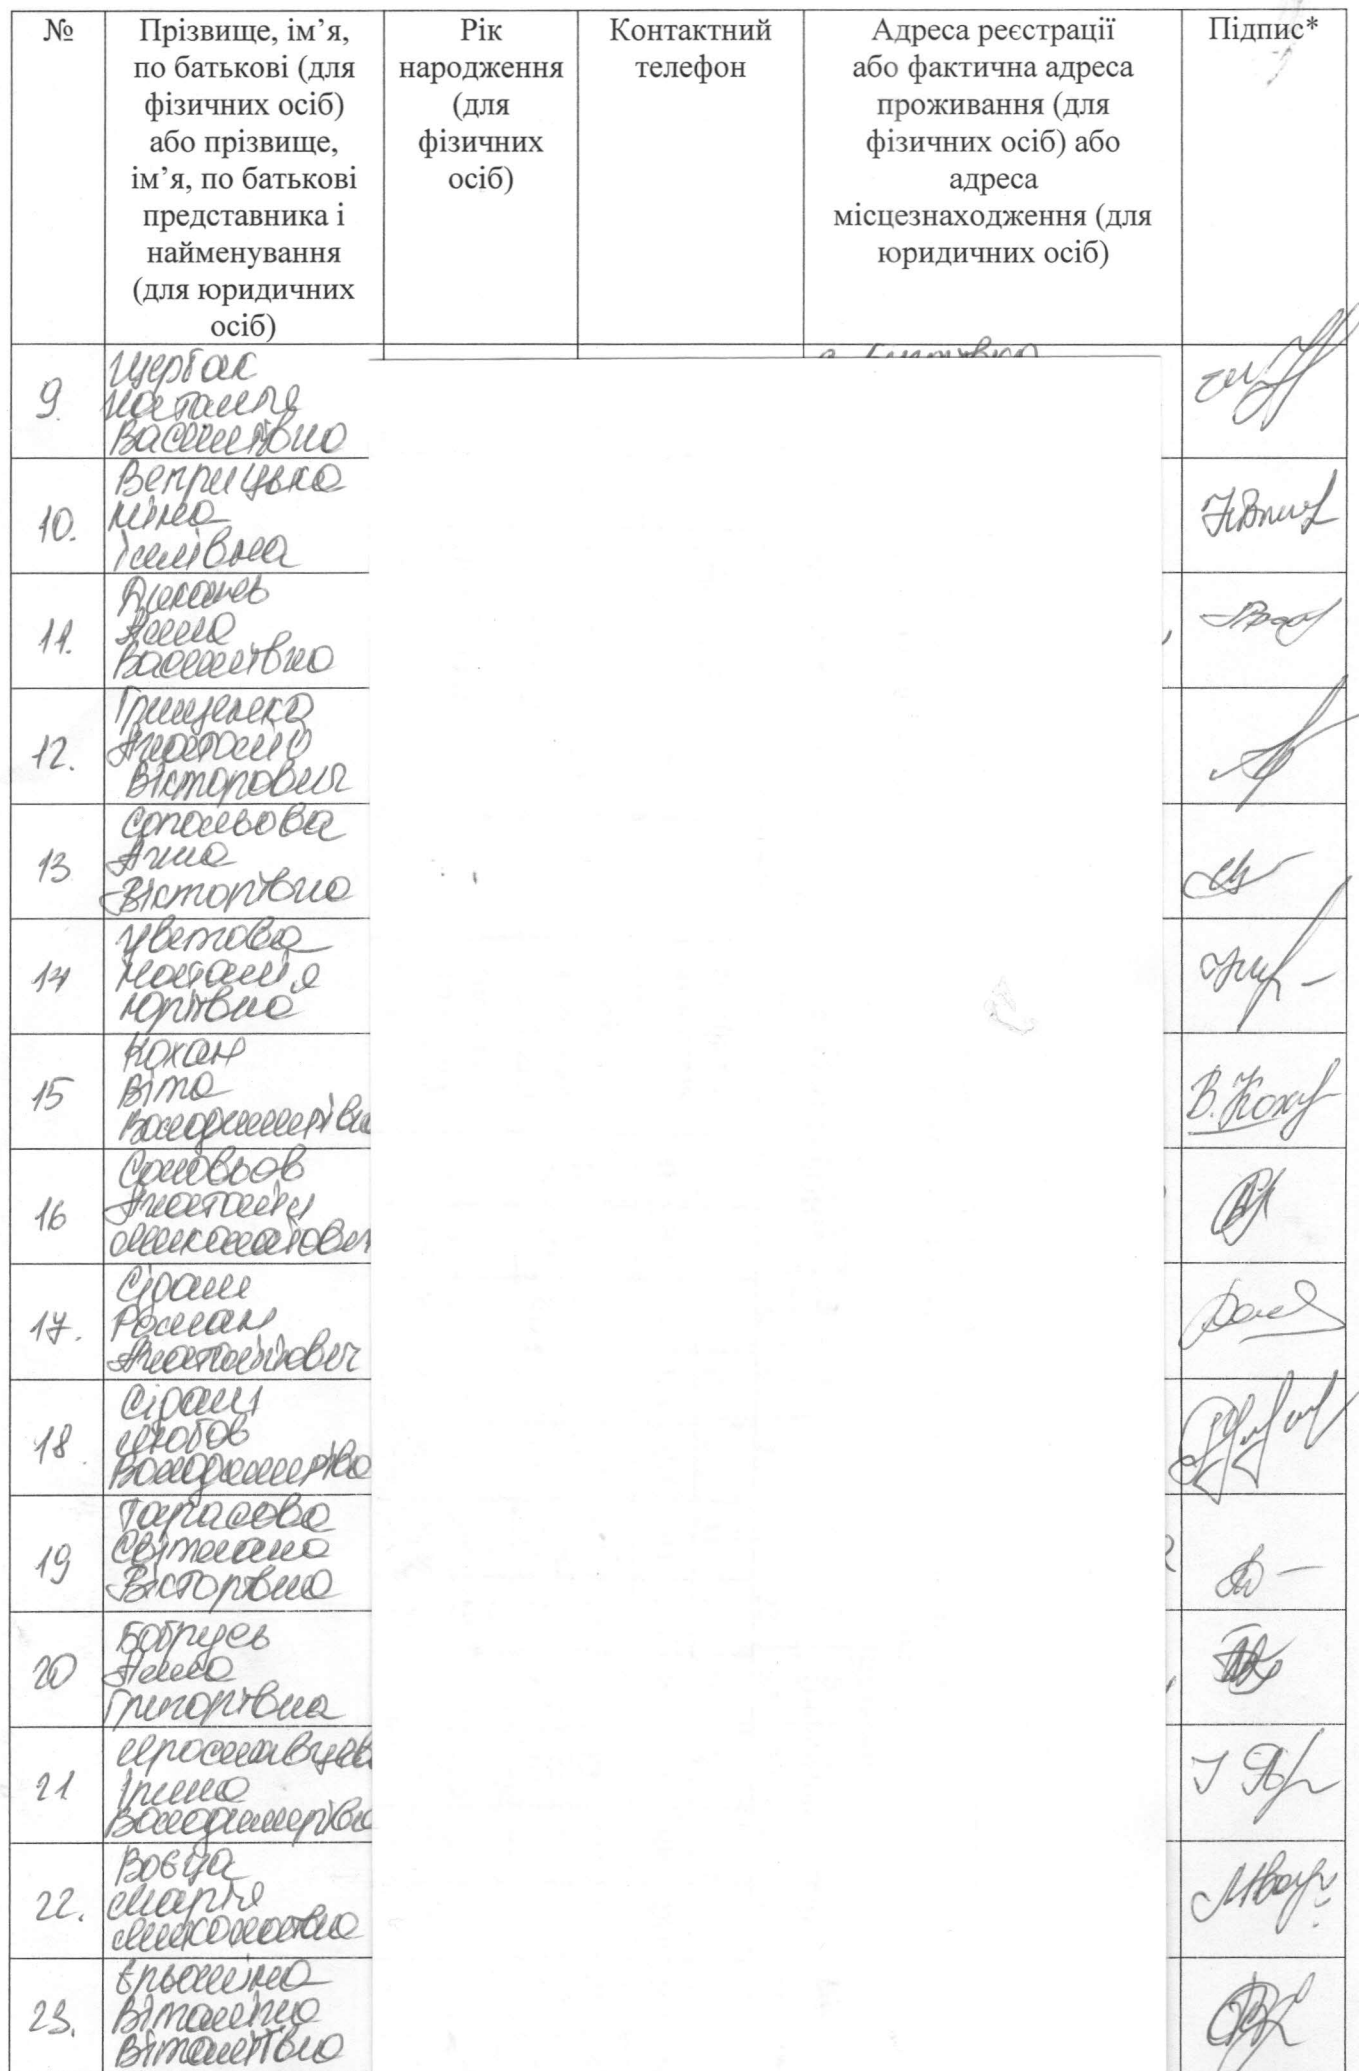 №
Прізвище, ім’я,
по батькові (для
фізичних осіб)
або прізвище,
ім’я, по батькові
представника і
найменування
(для юридичних
осіб)
Рік
народження
(для
фізичних
осіб)
Контактний
телефон
Адреса реєстрації
або фактична адреса
проживання (для
фізичних осіб) або
адреса
місцезнаходження (для
юридичних осіб)
Підпис*
9.
Щербак
Наталія
Василівна
10.
Веприцька
Ніна
11.
Анна
Василівна
12.
Грищенко
Анатолій
Вікторович
13
Анна
Вікторівна
14
Цветова
Наталія
Юріївна
15
Кохан
Віта
Володимирівна
В. Кохан
16
Соловьов
Анатолій
Миколайович
17.
Сідаш
Роман
Анатолійович
18.
Сідаш
Любов
Володимирівна
19
Тарасова
Світлана
Вікторівна
20
Бобрусь
Анна
Григорівна
21
Ірина
Володимирівна
22.
Воєца
Марія
Миколаївна
23.
Єрьоміна
Віталіна
Віталіївна